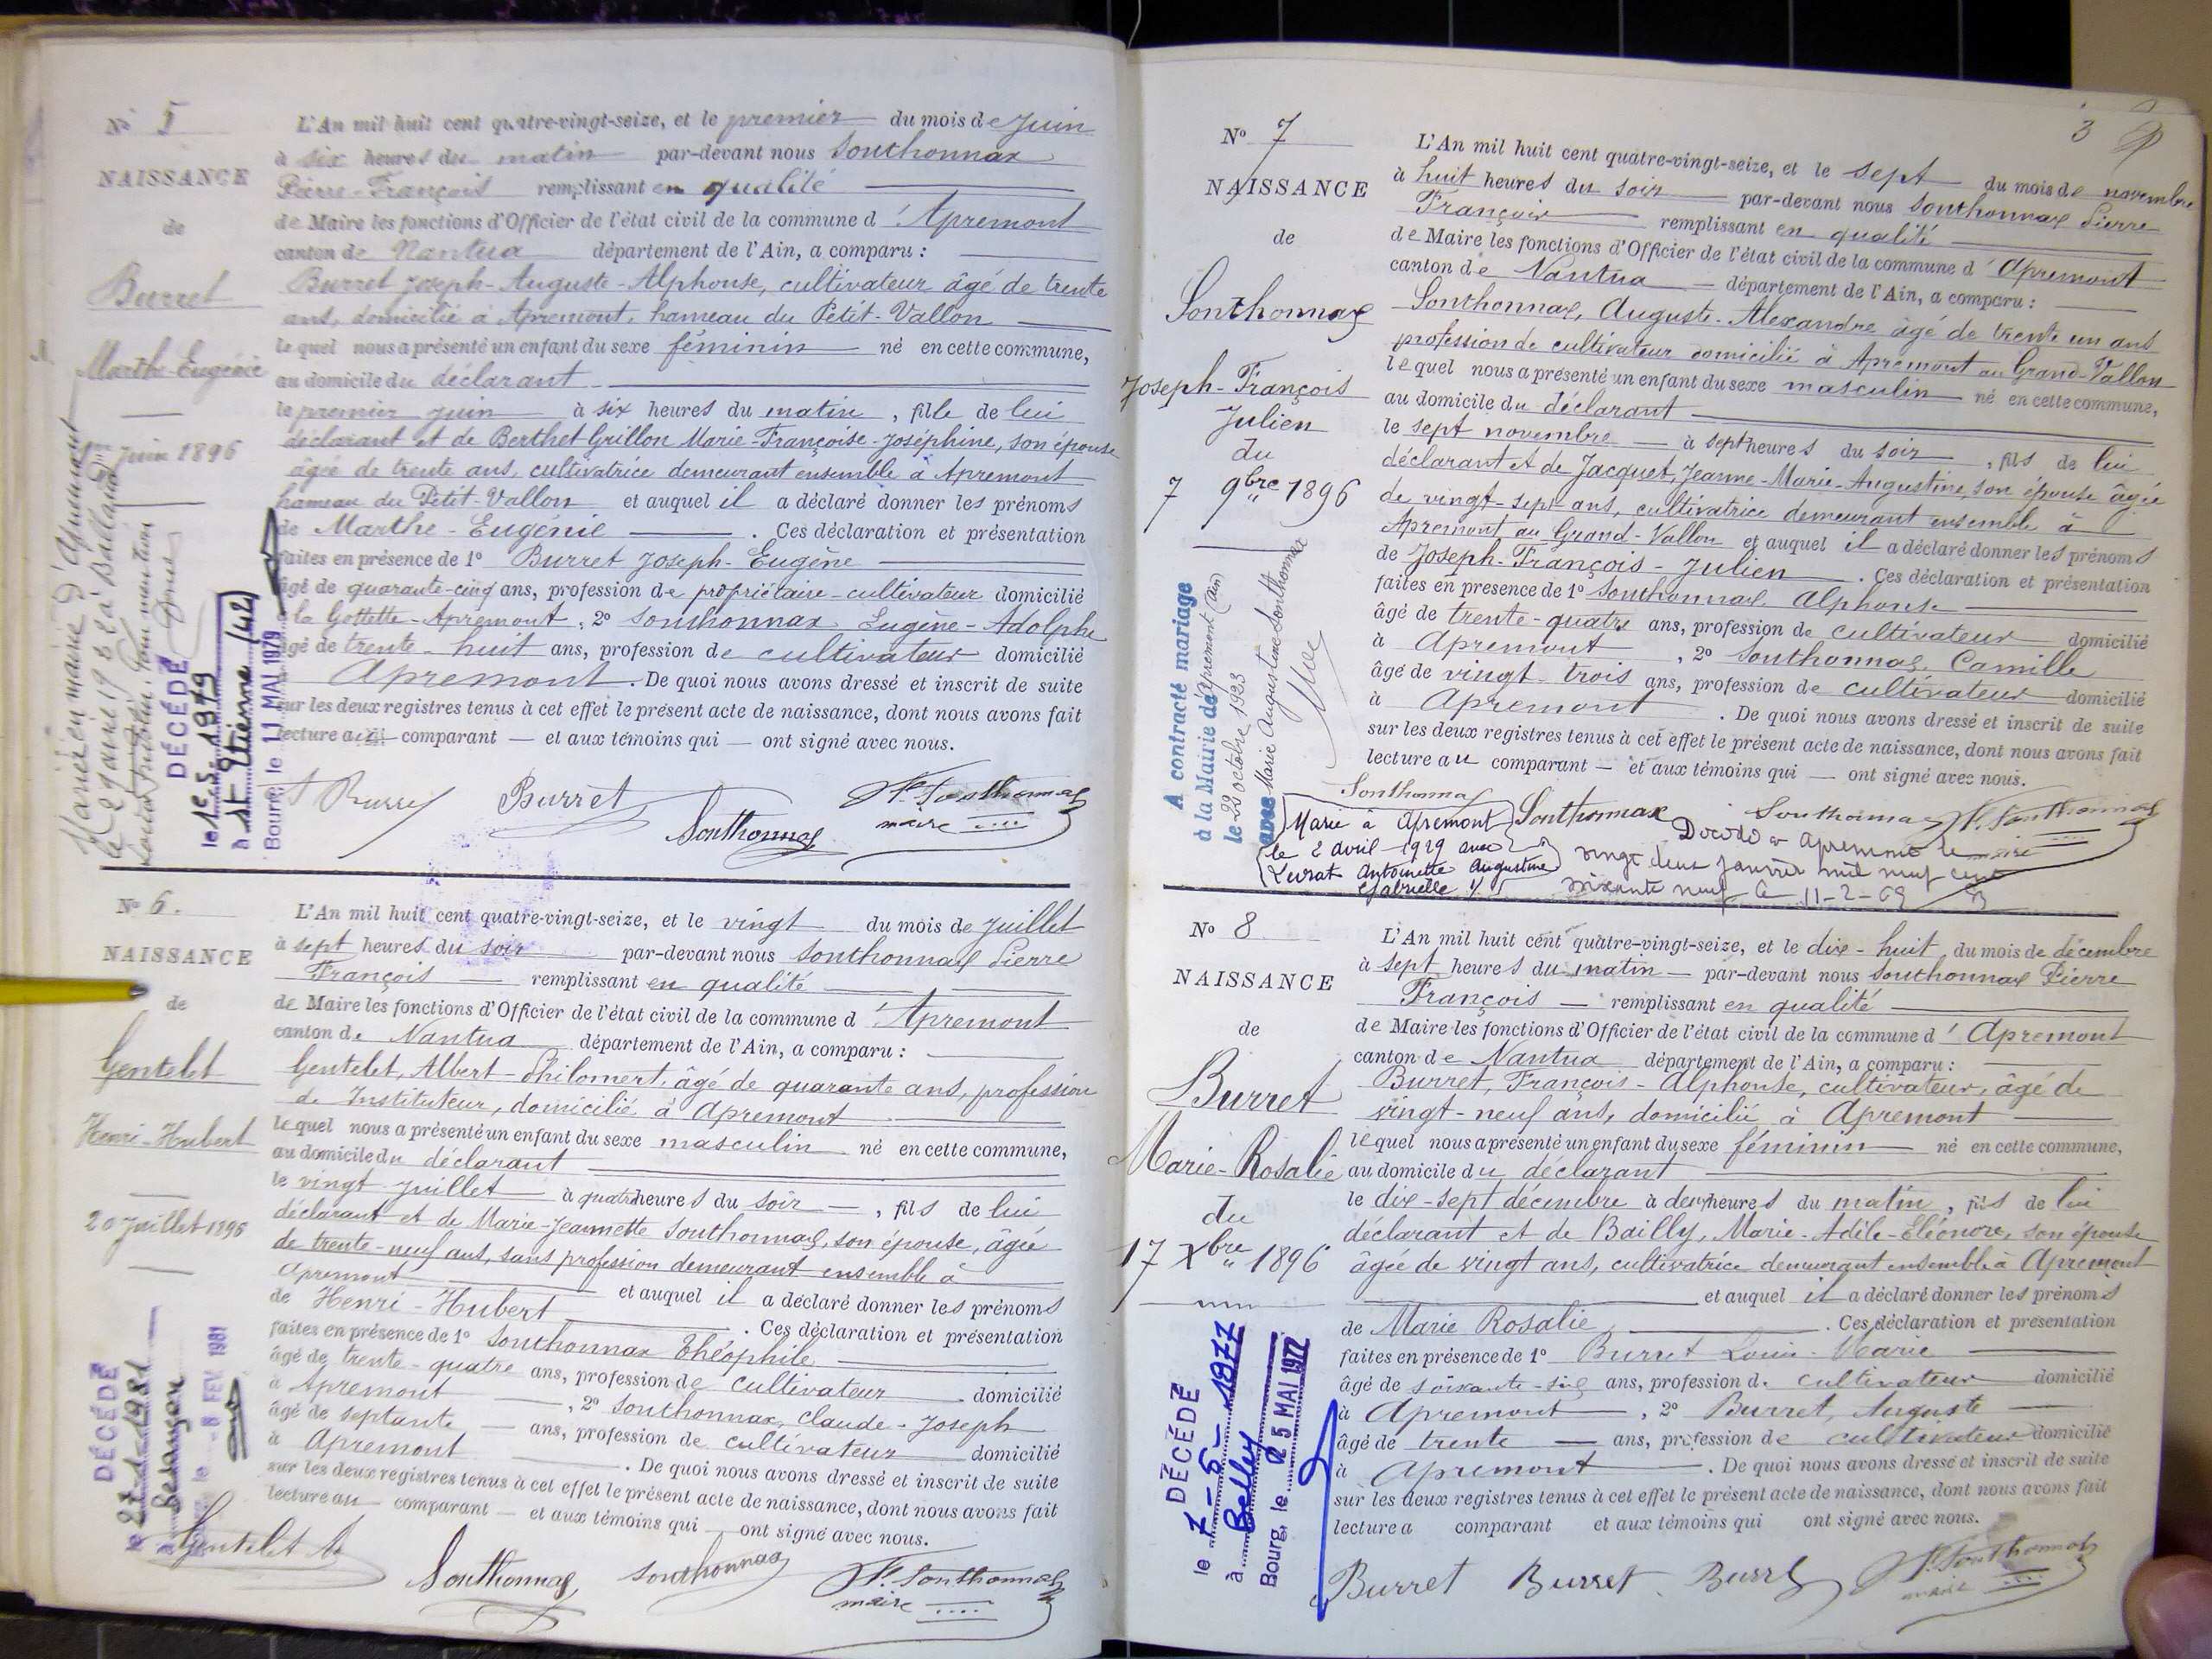 N° 5
NAISSANCE
de
Burret
Marthe-Eugénie
1er Juin 1896
L'An mil huit cent quatre-vingt-seize, et le premier du mois de Juin
à six heures du matin par-devant nous Sonthonnax
Pierre-François remplissant en qualité
de Maire les fonctions d'Officier de l'état civil de la commune d'Apremont
canton de Nantua département de l'Ain, a comparu :
Burret Joseph-Auguste-Alphonse, cultivateur âgé de trente
ans, domicilié à Apremont, hameau du Petit-Vallon
lequel nous a présenté un enfant du sexe féminin né en cette commune,
au domicile du déclarant
le premier juin à six heures du matin, fille de lui
déclarant et de Berthet Grillon Marie-Françoise-Joséphine, son épouse
âgée de trente ans, cultivatrice demeurant ensemble à Apremont
hameau du Petit-Vallon et auquel il a déclaré donner les prénoms
de Marthe-Eugénie. Ces déclaration et présentation
faites en présence de 1° Burret Joseph-Eugène
âgé de quarante-cinq ans, profession de propriétaire-cultivateur domicilié
à la Gottette-Apremont, 2° Sonthonnax Eugène-Adolphe
âgé de trente-huit ans, profession de cultivateur domicilié
à Apremont. De quoi nous avons dressé et inscrit de suite
sur les deux registres tenus à cet effet le présent acte de naissance, dont nous avons fait
lecture au comparant et aux témoins qui ont signé avec nous.
Burret Sonthonnax P. Sonthonnax
maire
Mariée en mairie d'Apremont
DÉCÉDÉ
le 1e.5.1979
à St Etienne (42)
Bourg, le 11 MAI 1979
N° 6.
NAISSANCE
de
Gentelet
Henri-Hubert
20 Juillet 1896
L'An mil huit cent quatre-vingt-seize, et le vingt du mois de Juillet
à sept heures du soir par-devant nous Sonthonnax Pierre
François remplissant en qualité
de Maire les fonctions d'Officier de l'état civil de la commune d'Apremont
canton de Nantua département de l'Ain, a comparu :
Gentelet, Albert-Philomert, âgé de quarante ans, profession
de Instituteur, domicilié à Apremont
lequel nous a présenté un enfant du sexe masculin né en cette commune,
au domicile du déclarant
le vingt juillet à quatre heures du soir, fils de lui
déclarant et de Marie-Jeannette Sonthonnax, son épouse, âgée
de trente-neuf ans, sans profession demeurant ensemble à
Apremont et auquel il a déclaré donner les prénoms
de Henri-Hubert. Ces déclaration et présentation
faites en présence de 1° Sonthonnax Théophile
âgé de trente-quatre ans, profession de cultivateur domicilié
à Apremont, 2° Sonthonnax, Claude-Joseph
âgé de septante ans, profession de cultivateur domicilié
à Apremont. De quoi nous avons dressé et inscrit de suite
sur les deux registres tenus à cet effet le présent acte de naissance, dont nous avons fait
lecture au comparant et aux témoins qui ont signé avec nous.
Gentelet A. Sonthonnax Sonthonnax P. Sonthonnax
maire
DÉCÉDÉ
le 27-1-1981
à Besançon
le -8 FEV 1981
3
N° 7
NAISSANCE
de
Sonthonnax
Joseph-François
Julien
du
7 9bre 1896
L'An mil huit cent quatre-vingt-seize, et le sept du mois de novembre
à huit heures du soir par-devant nous Sonthonnax Pierre
François remplissant en qualité
de Maire les fonctions d'Officier de l'état civil de la commune d'Apremont
canton de Nantua département de l'Ain, a comparu :
Sonthonnax, Auguste-Alexandre âgé de trente un ans
profession de cultivateur domicilié à Apremont au Grand-Vallon
lequel nous a présenté un enfant du sexe masculin né en cette commune,
au domicile du déclarant
le sept novembre à sept heures du soir, fils de lui
déclarant et de Jacquet, Jeanne-Marie-Augustine, son épouse âgée
de vingt-sept ans, cultivatrice demeurant ensemble à
Apremont au Grand-Vallon et auquel il a déclaré donner les prénoms
de Joseph-François-Julien. Ces déclaration et présentation
faites en présence de 1° Sonthonnax Alphonse
âgé de trente-quatre ans, profession de cultivateur domicilié
à Apremont, 2° Sonthonnax Camille
âgé de vingt-trois ans, profession de cultivateur domicilié
à Apremont. De quoi nous avons dressé et inscrit de suite
sur les deux registres tenus à cet effet le présent acte de naissance, dont nous avons fait
lecture au comparant et aux témoins qui ont signé avec nous.
Sonthonnax Sonthonnax Sonthonnax P. Sonthonnax
maire
A contracté mariage
à la Mairie de Apremont (Ain)
le 22 octobre 1923
avec Marie Augustine Sonthonnax
Marié à Apremont
le 2 avril 1929 avec
Levrat Antoinette Augustine
Gabrielle
Décédé à Apremont le
vingt deux janvier mil neuf cent
soixante neuf le 11-2-69
N° 8
NAISSANCE
de
Burret
Marie-Rosalie
du
17 Xbre 1896
L'An mil huit cent quatre-vingt-seize, et le dix-huit du mois de décembre
à sept heures du matin par-devant nous Sonthonnax Pierre
François remplissant en qualité
de Maire les fonctions d'Officier de l'état civil de la commune d'Apremont
canton de Nantua département de l'Ain, a comparu :
Burret, François-Alphonse, cultivateur, âgé de
vingt-neuf ans, domicilié à Apremont
lequel nous a présenté un enfant du sexe féminin né en cette commune,
au domicile du déclarant
le dix-sept décembre à deux heures du matin, fils de lui
déclarant et de Bailly, Marie-Adèle-Eléonore, son épouse
âgée de vingt ans, cultivatrice demeurant ensemble à Apremont
et auquel il a déclaré donner les prénoms
de Marie Rosalie. Ces déclaration et présentation
faites en présence de 1° Burret Louis-Marie
âgé de soixante-six ans, profession de cultivateur domicilié
à Apremont, 2° Burret, Auguste
âgé de trente ans, profession de cultivateur domicilié
à Apremont. De quoi nous avons dressé et inscrit de suite
sur les deux registres tenus à cet effet le présent acte de naissance, dont nous avons fait
lecture a comparant et aux témoins qui ont signé avec nous.
Burret Burret Burret P. Sonthonnax
maire
DÉCÉDÉ
le 1-5-1977
à Belley
Bourg, le 25 MAI 1977